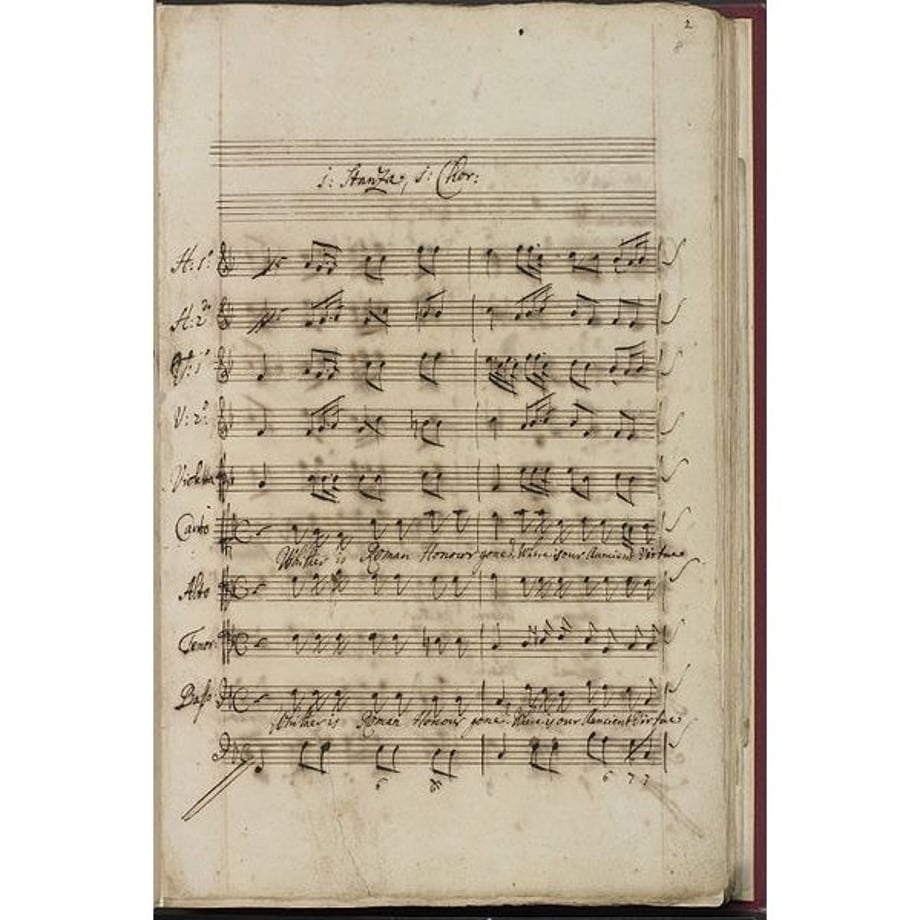 2
8
1: Stanza, 1: Chor:
H: 1º
H: 2do
V: 1º
V: 2º
Violetta
Canto
Whither is Roman Honour gone? Where is our Ancient Virtue
Alto
Tenor
Basso
Whither is Roman Honour gone? Where is our Auncient Virtue
6
6 7 7